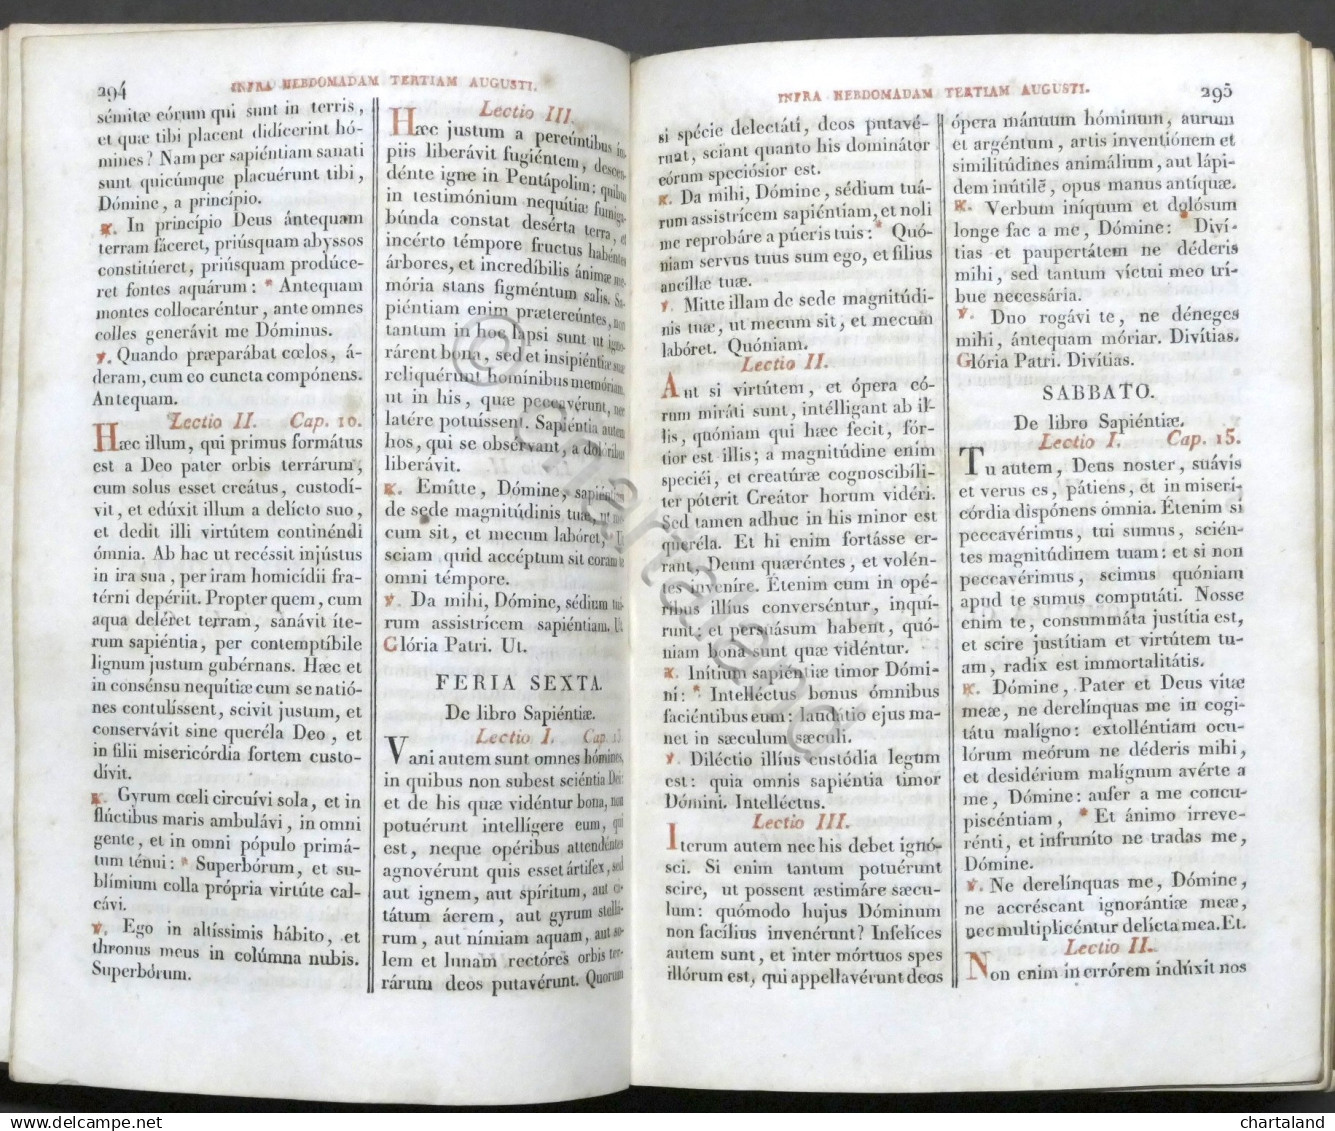 294
INFRA HEBDOMADAM TERTIAM AUGUSTI.
sémitæ eórum qui sunt in terris,
et quæ tibi placent didícerint hó-
mines? Nam per sapiéntiam sanati
sunt quicúmque placuérunt tibi,
Dómine, a princípio.
℟. In princípio Deus ántequam
terram fáceret, priúsquam abyssos
constitúeret, priúsquam prodúce-
ret fontes aquárum: * Antequam
montes collocaréntur, ante omnes
colles generávit me Dóminus.
℣. Quando præparábat cœlos, á-
deram, cum eo cuncta compónens.
Antequam.
Lectio II. Cap. 10.
Hæc illum, qui primus formátus
est a Deo pater orbis terrárum,
cum solus esset creátus, custodí-
vit, et edúxit illum a delícto suo,
et dedit illi virtútem continéndi
ómnia. Ab hac ut recéssit injústus
in ira sua, per iram homicídii fra-
térni depériit. Propter quem, cum
aqua deléret terram, sanávit íte-
rum sapiéntia, per contemptíbile
lignum justum gubérnans. Hæc et
in consénsu nequítiæ cum se natió-
nes contulíssent, scivit justum, et
conservávit sine queréla Deo, et
in fílii misericórdia fortem custo-
dívit.
℟. Gyrum cœli circuívi sola, et in
flúctibus maris ambulávi, in omni
gente, et in omni pópulo primá-
tum ténui: * Superbórum, et su-
blímium colla própria virtúte cal-
cávi.
℣. Ego in altíssimis hábito, et
thronus meus in colúmna nubis.
Superbórum.
Lectio III.
Hæc justum a pereúntibus ím-
piis liberávit fugiéntem, descen-
dénte igne in Pentápolim; quibus
in testimónium nequítiæ fumiga-
búnda constat desérta terra, et
incérto témpore fructus habéntes
árbores, et incredíbilis ánimæ me-
mória stans figméntum salis. Sa-
piéntiam enim prætereúntes, non
tantum in hoc lapsi sunt ut igno-
rárent bona, sed et insipiéntiæ suæ
reliquérunt homínibus memóriam,
ut in his, quæ peccavérunt, nec
latére potuíssent. Sapiéntia autem
hos, qui se observant, a dolóribus
liberávit.
℟. Emítte, Dómine, sapiéntiam
de sede magnitúdinis tuæ, ut me-
cum sit, et mecum labóret, * Ut
sciam quid accéptum sit coram te
omni témpore.
℣. Da mihi, Dómine, sédium tuá-
rum assistrícem sapiéntiam. Ut
Glória Patri. Ut.
FERIA SEXTA.
De libro Sapiéntiæ.
Lectio I. Cap. 13
Vani autem sunt omnes hómines,
in quibus non subest sciéntia Dei:
et de his quæ vidéntur bona, non
potuérunt intellígere eum, qui
est, neque opéribus attendéntes
agnovérunt quis esset ártifex, sed
aut ignem, aut spíritum, aut ci-
tátum áerem, aut gyrum stellá-
rum, aut nímiam aquam, aut so-
lem et lunam rectóres orbis ter-
rárum deos putavérunt. Quorum
INFRA HEBDOMADAM TERTIAM AUGUSTI.
295
si spécie delectáti, deos putavé-
runt, sciant quanto his dominátor
eórum speciósior est.
℟. Da mihi, Dómine, sédium tuá-
rum assistrícem sapiéntiam, et noli
me reprobáre a púeris tuis: * Quó-
niam servus tuus sum ego, et fílius
ancíllæ tuæ.
℣. Mitte illam de sede magnitúdi-
nis tuæ, ut mecum sit, et mecum
labóret. Quóniam.
Lectio II.
Aut si virtútem, et ópera eó-
rum miráti sunt, intélligant ab il-
lis, quóniam qui hæc fecit, fór-
tior est illis; a magnitúdine enim
speciéi, et creatúræ cognoscibíli-
ter póterit Creátor horum vidéri.
Sed tamen adhuc in his minor est
queréla. Et hi enim fortásse er-
rant, Deum quæréntes, et volén-
tes inveníre. Étenim cum in opé-
ribus illíus converséntur, inquí-
runt; et persuásum habent, quó-
niam bona sunt quæ vidéntur.
℟. Inítium sapiéntiæ timor Dómi-
ni: * Intelléctus bonus ómnibus
faciéntibus eum: laudátio ejus ma-
net in sæculum sæculi.
℣. Diléctio illíus custódia legum
est: quia omnis sapiéntia timor
Dómini. Intelléctus.
Lectio III.
Iterum autem nec his debet ignó-
sci. Si enim tantum potuérunt
scire, ut possent æstimáre sæcu-
lum: quómodo hujus Dóminum
non facílius invenérunt? Infelíces
autem sunt, et inter mórtuos spes
illórum est, qui appellavérunt deos
ópera mánuum hóminum, aurum
et argéntum, artis inventiónem et
similitúdines animálium, aut lápi-
dem inútilē, opus manus antíquæ.
℟. Verbum iníquum et dolósum
longe fac a me, Dómine: * Diví-
tias et paupertátem ne déderis
mihi, sed tantum víctui meo trí-
bue necessária.
℣. Duo rogávi te, ne déneges
mihi, ántequam móriar. Divítias.
Glória Patri. Divítias.
SABBATO.
De libro Sapiéntiæ.
Lectio I. Cap. 15.
Tu autem, Deus noster, suávis
et verus es, pátiens, et in miseri-
córdia dispónens ómnia. Étenim si
peccavérimus, tui sumus, scién-
tes magnitúdinem tuam: et si non
peccavérimus, scimus quóniam
apud te sumus computáti. Nosse
enim te, consummáta justítia est,
et scire justítiam et virtútem tu-
am, radix est immortalitátis.
℟. Dómine, Pater et Deus vitæ
meæ, ne derelínquas me in cogi-
tátu malígno: extolléntiam ocu-
lórum meórum ne déderis mihi,
et desidérium malígnum avérte a
me, Dómine: aufer a me concu-
piscéntiam, * Et ánimo irreve-
rénti, et infruníto ne tradas me,
Dómine.
℣. Ne derelínquas me, Dómine,
ne accréscant ignorántiæ meæ,
nec multiplicéntur delícta mea. Et.
Lectio II.
Non enim in errórem indúxit nos
© Chartaland
chartaland